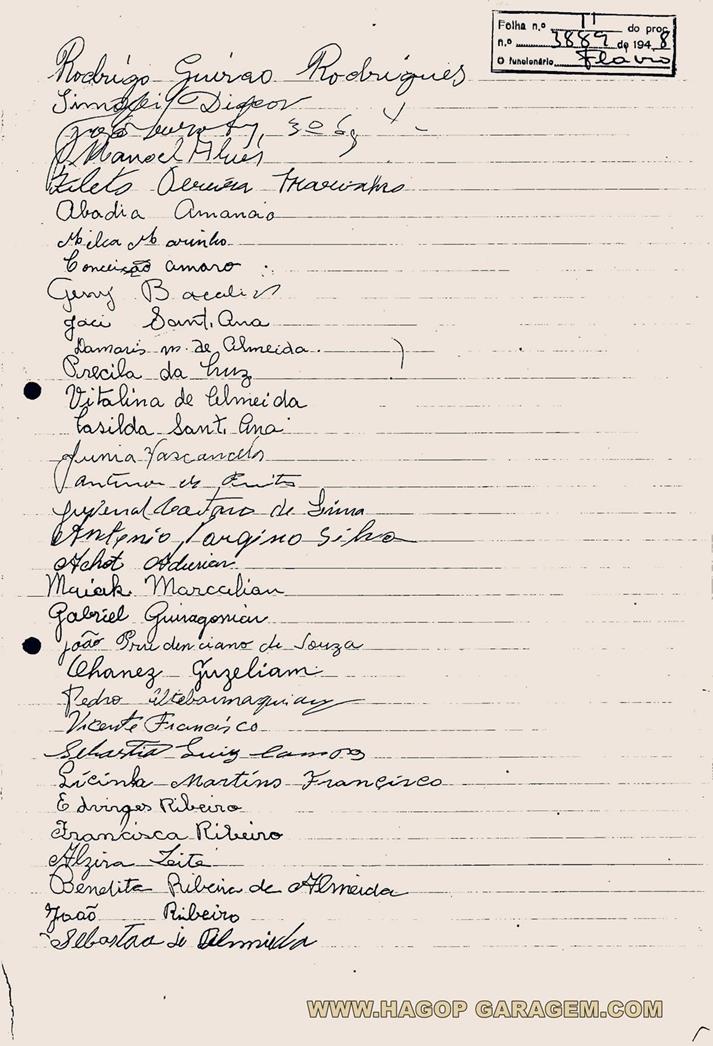 Folha n.º 11 do proc.
n.º 3889 de 1948
O funcionário Flavio
Rodrigo Guirao Rodrigues
Manoel Alves
Abadia Amancio
Milca Marinho
Conceissão amaro
Geny
Jaci Sant. Ana
Damaris m. de Almeida.
Precila da Luz
Vitalina de Almeida
Casilda Sant. Ana
Junia Vascancelos
Juvenal Caetano de Lima
Antenio Vargino Silva
Achot
Maiak Marcalian
Gabriel Guiragonian
João Prudenciano de Souza
Ohanez Guzeliam
Pedro
Vicente Francisco
Sebastia Luiz Campos
Licinha Martins Francisco
Edvirges Ribeiro
Francisca Ribeiro
Alzira Leite
Benedita Ribeira de Almeida
João Ribeiro
Sebastiao de Almeida
WWW.HAGOP GARAGEM.COM